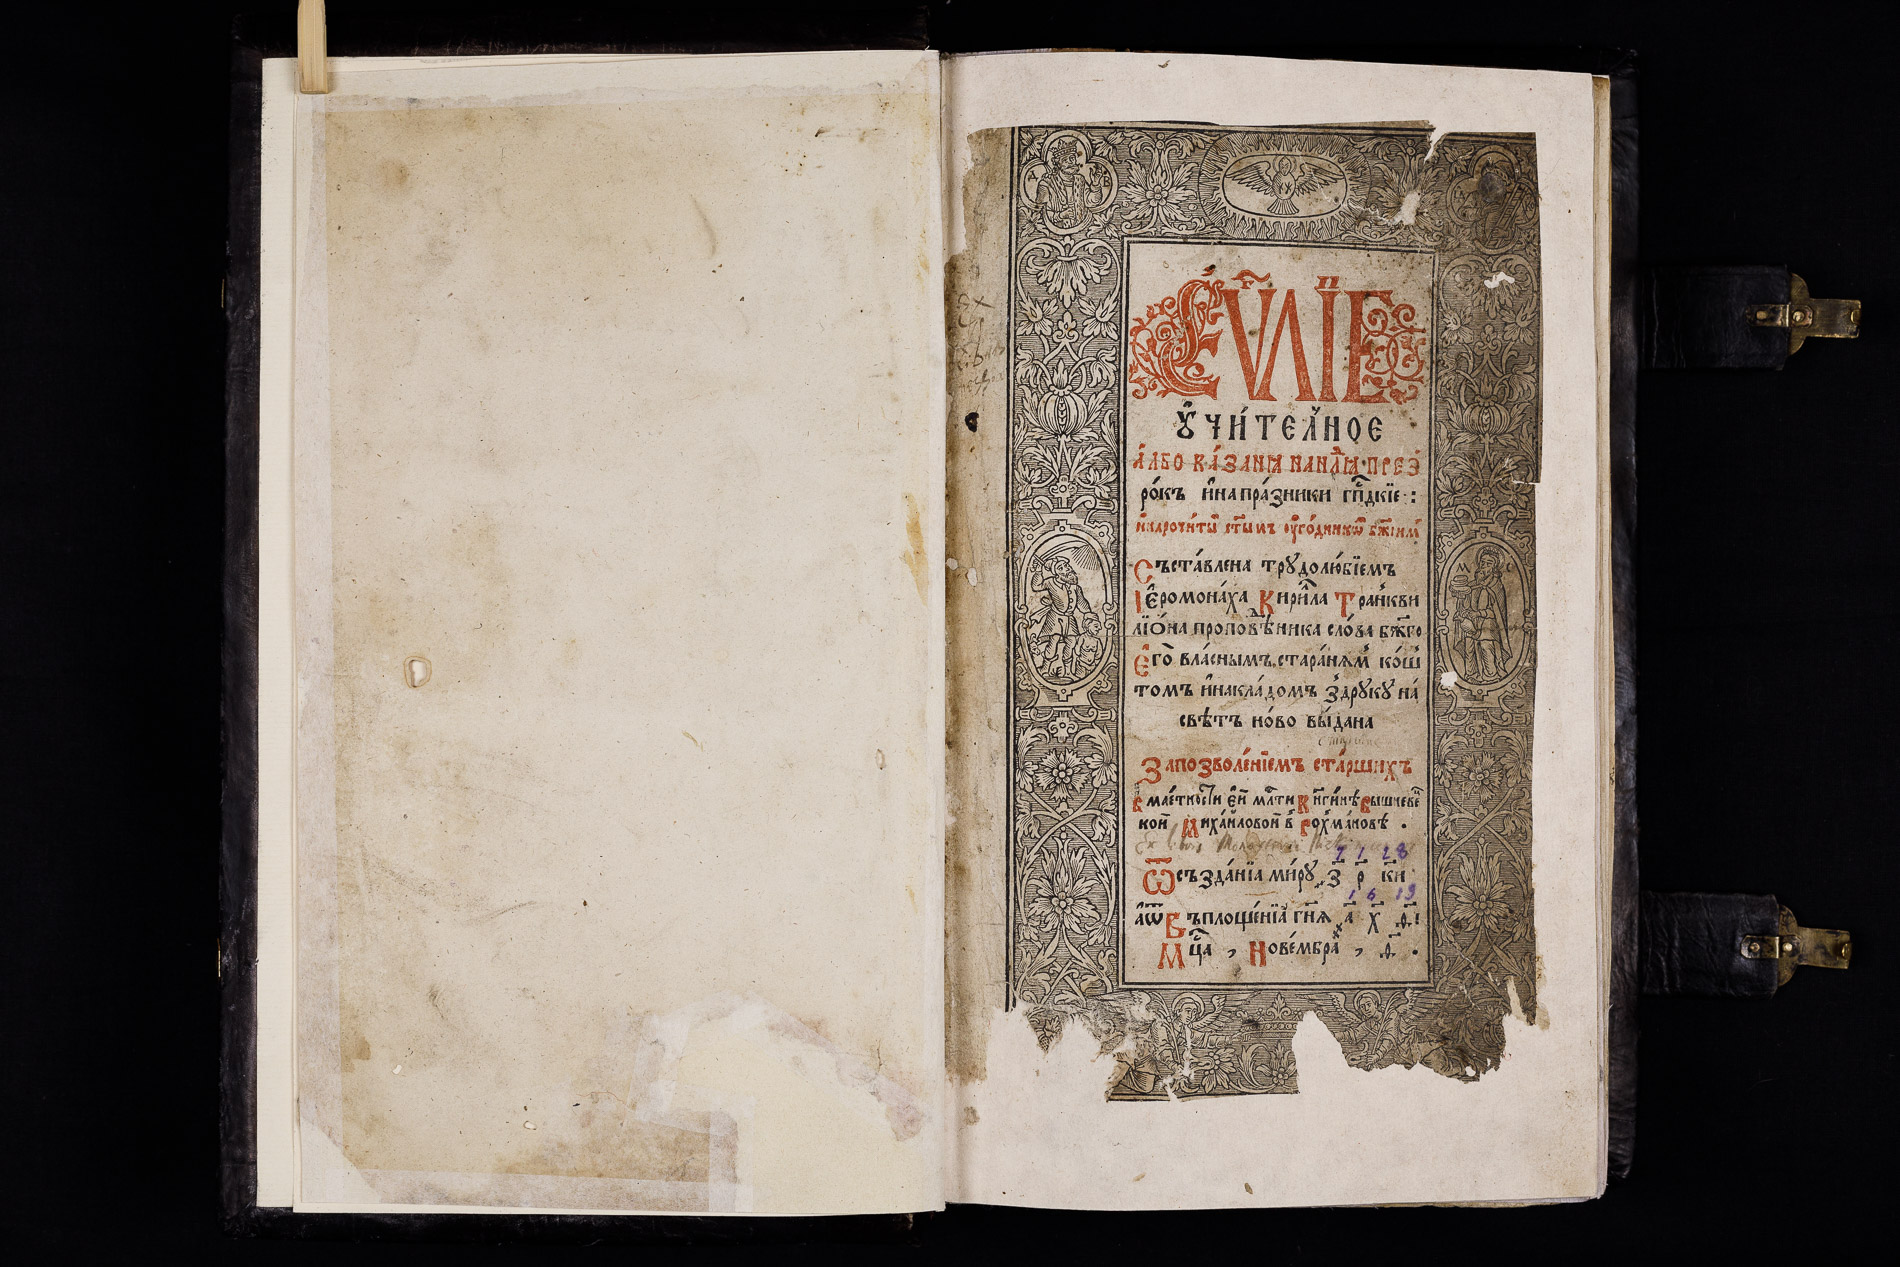 ЕУⷢ҇ЛІЕ
ᲂУЧИ́ТЕЛНОЕ
А́ЛБО КА́ЗАНѦ НАНДЛѦ ПРЕЗ̾
ро́къ и҆ на пра́зники гпⷭ҇дкїе :
и҆ нарочи́ты ст҃ымъ ᲂу҆го́дникѡⷨ бж҃їимⸯ
Съста́влена трудолю́бїемъ
І҆еромона́ха Кири́ла Транкви
лїо́на проповѣⷣника сло́ва бж҃го
Е҆го̀ вла́снымъ стара́нямⸯ ко́ш
томъ и҆ накла́домъ з̾друку на́
свѣтъ но́во вы́дана
За позволе́нїемъ ста́ршихъ
в̾ мае́тности е҆й млⷭ҇ти кнⷽги́нѣ Вышневеⷰ
кой Миха́йловой в̾ Рохма́новѣ .
Ex libris
7 1 2 8
Ѿ създа́нїа ми́ру ҂з р кн
1 6 19
а҆ѿ Въплоще́нїа гнⷭ҇я ҂а х ѳ҃і
Мцⷭ҇а , Нове́мбра , ѳ҃ .